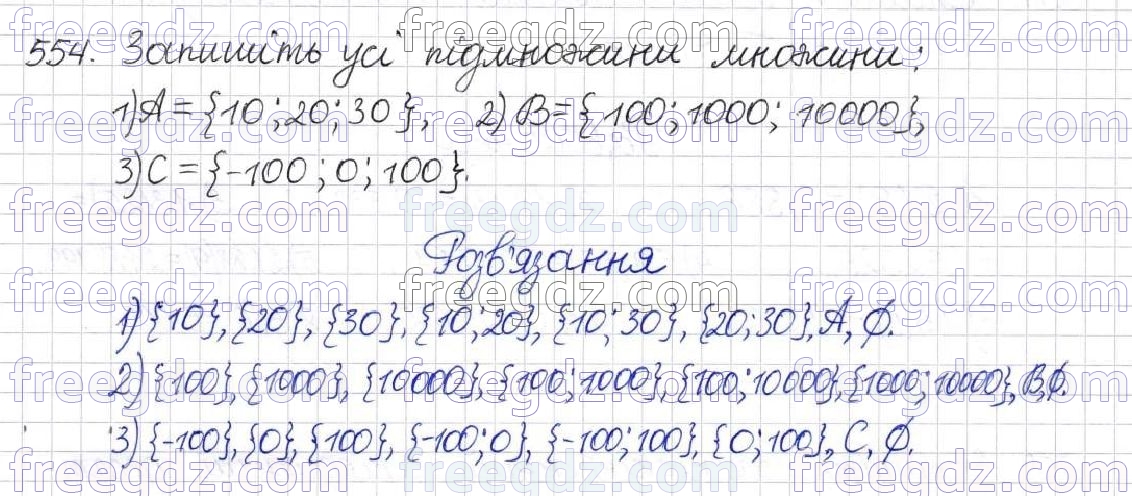 554. Запишіть усі підмножини множини:
1) A = {10; 20; 30}, 2) B = {100; 1000; 10000},
3) C = {-100; 0; 100}.
Розв'язання
1) {10}, {20}, {30}, {10; 20}, {10; 30}, {20; 30}, A, ∅.
2) {100}, {1000}, {10000}, {100; 1000}, {100; 10000}, {1000; 10000}, B, ∅.
3) {-100}, {0}, {100}, {-100; 0}, {-100; 100}, {0; 100}, C, ∅.
freegdz.com